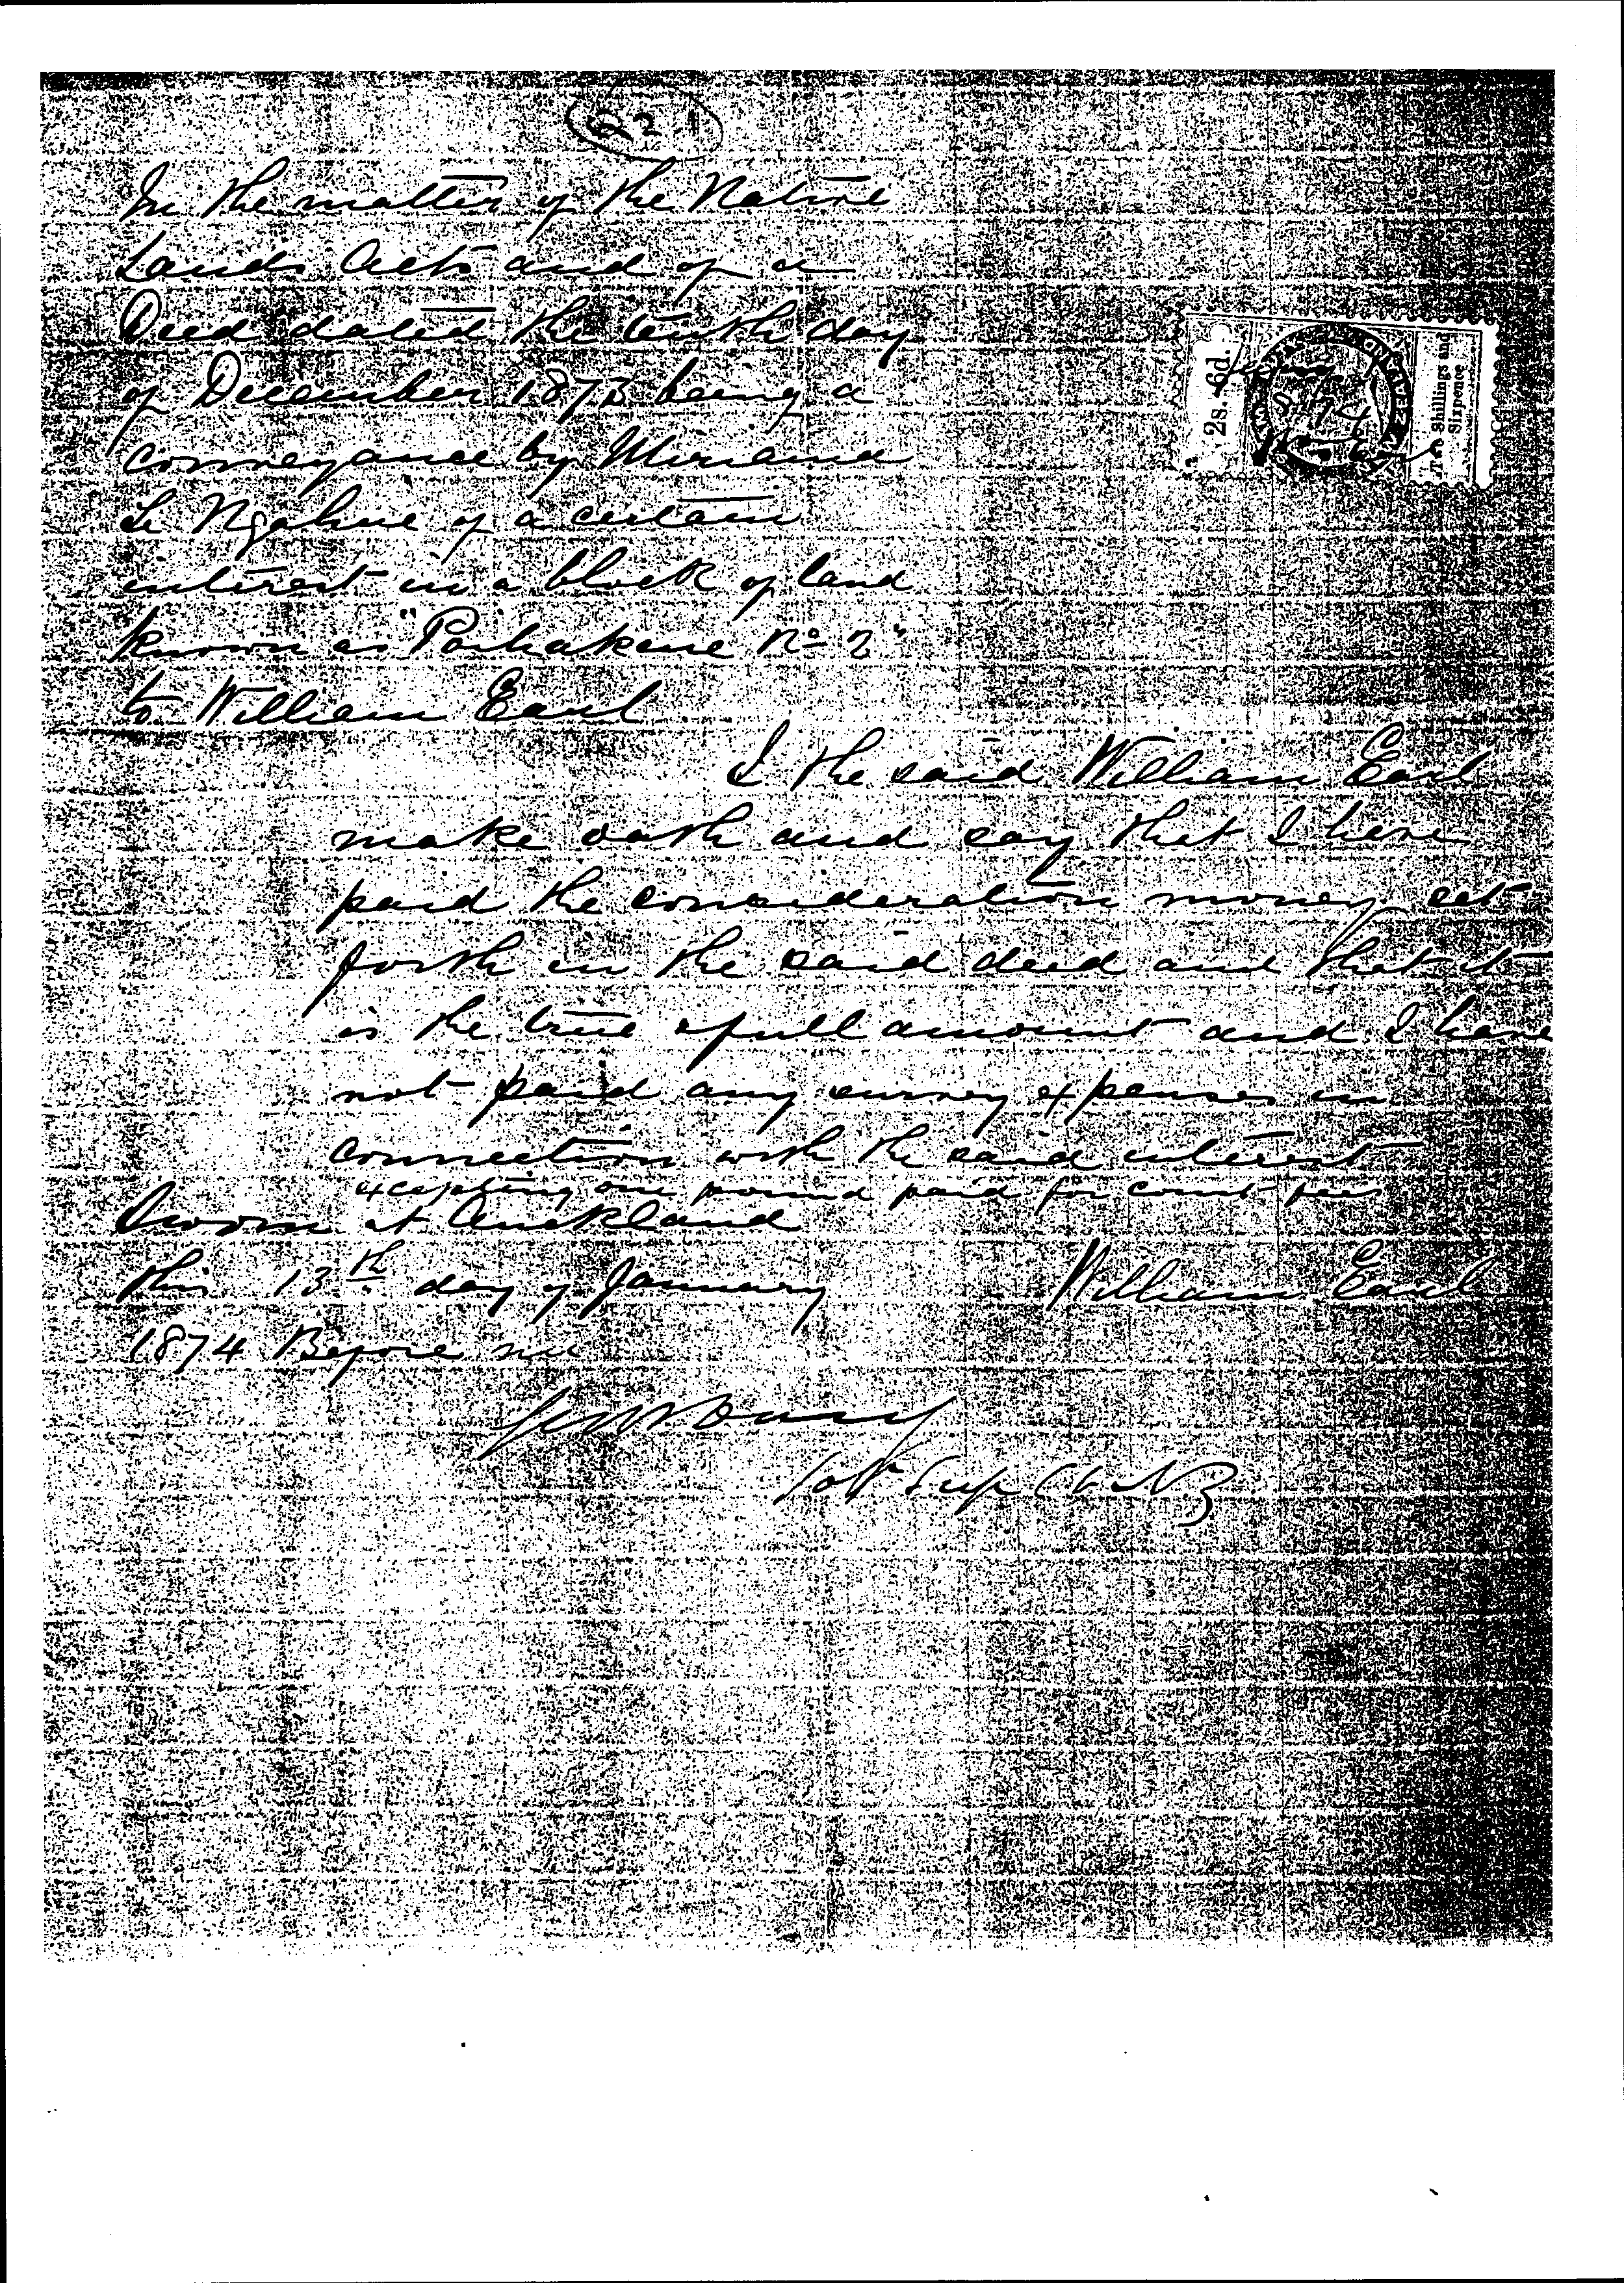 22
In the matter of the Native
Lands Acts and of a
Deed dated the tenth day
of December 1873 being a
conveyance by Miriama
Te Ngahue of a certain
interest in a block of land
known as "Paihakene No 2"
to William Earl
2s. 6d.
Two Shillings and
Sixpence
I the said William Earl
make oath and say that I have
paid the consideration money set
forth in the said deed and that it
is the true & full amount and I have
not paid any survey expenses in
connection with the said interest
excepting one pound paid for court fees
Sworn at Auckland
this 13th day of January
William Earl
1874 Before me
Solr Sup Ct NZ